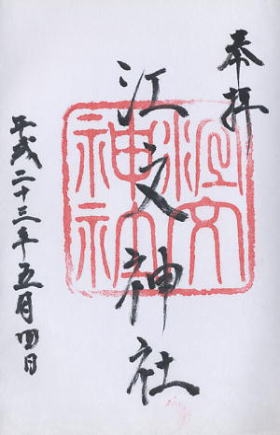 奉拝
江文神社
平成二十三年五月四日
江文
神社